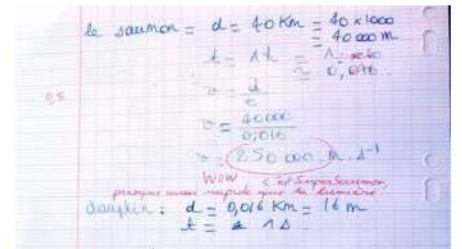 le saumon = d = 40 Km = 40 x 1000
= 40 000 m
t = 1h =
≈ 0,016
0,5
v = d
t
v = 40000
0,016
v = 250 000 m.s-1
WOW c'est SuperSaumon,
presque aussi rapide que la lumière
dauphin : d = 0,016 Km = 16 m
t = 1s